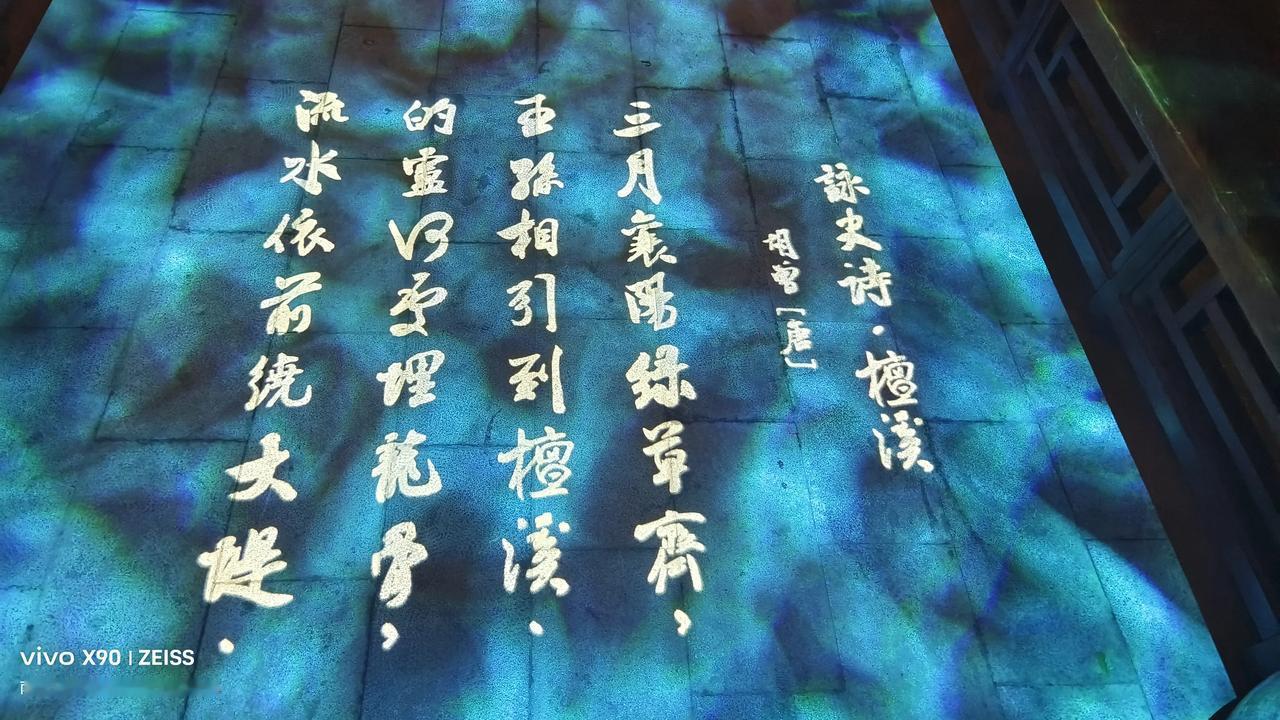 詠史诗·檀溪
胡曾［唐］
三月襄陽綠草齊，
王孫相引到檀溪、
的靈何處埋龍骨，
流水依前繞大堤.
vivo X90 | ZEISS